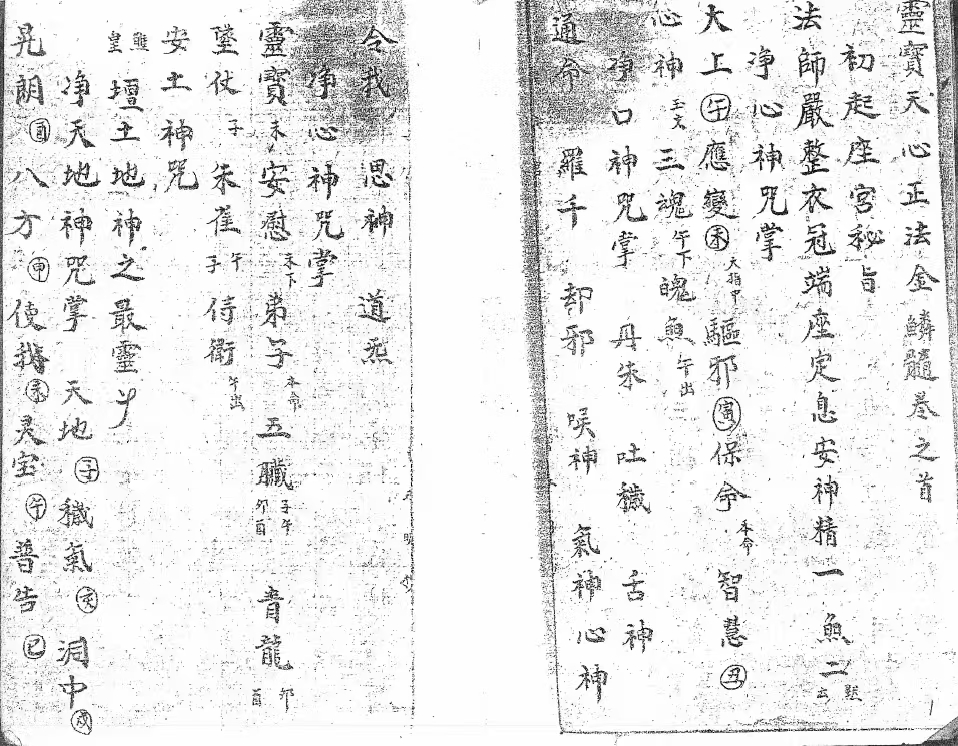 靈寶天心正法金鱗髓卷之首
初起座宮秘旨
法師嚴整衣冠端座定息安神精一無二 默云
淨心神咒掌
大上午應變未大指甲驅邪寅保命本命智慧丑
心神玉文三魂午下魄無午出
淨口神咒掌 丹朱 吐穢 舌神
通命 羅千 却邪 喉神 氣神心神
令我 思神 道炁
淨心神咒掌
靈寶未安慰未下弟子本命五臟子午卯酉 青龍卯酉
墜仗子朱雀午子侍衛午出
安土神咒
壇土地神之最靈
淨天地神咒掌 天地子穢氣亥洞中戌
晃朗酉八方申使我未灵宝午普告巳